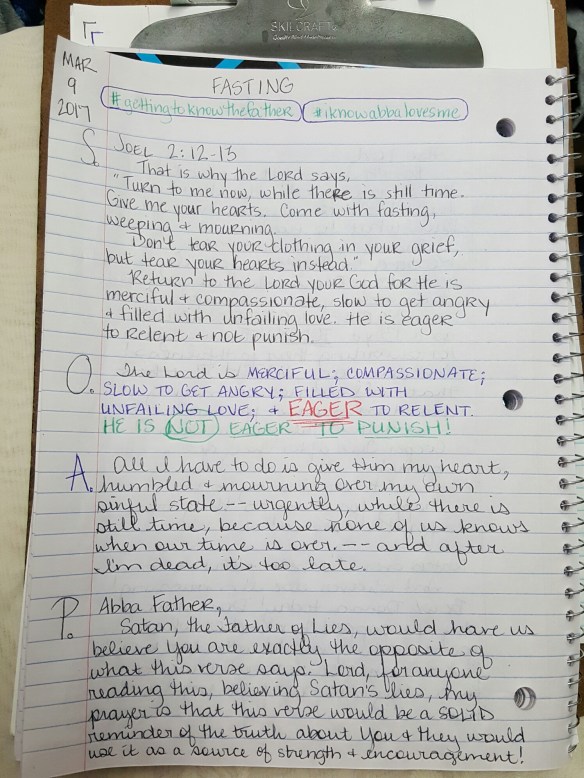 SKILCRAFT
MAR
9
2017
FASTING
#gettingtoknowthefather #iknowabbalovesme
S. JOEL 2:12-13
That is why the Lord says,
"Turn to me now, while there is still time.
Give me your hearts. Come with fasting,
weeping & mourning.
Don't tear your clothing in your grief,
but tear your hearts instead."
Return to the Lord your God for He is
merciful & compassionate, slow to get angry
& filled with unfailing love. He is eager
to relent & not punish.
O. The Lord is MERCIFUL; COMPASSIONATE;
SLOW TO GET ANGRY; FILLED WITH
UNFAILING LOVE; & EAGER TO RELENT.
HE IS NOT EAGER TO PUNISH!
A. All I have to do is give Him my heart,
humbled & mourning over my own
sinful state -- urgently, while there is
still time, because none of us knows
when our time is over. -- and after
I'm dead, it's too late.
P. Abba Father,
Satan, the Father of Lies, would have us
believe You are exactly the opposite of
what this verse says. Lord, for anyone
reading this, believing Satan's lies, my
prayer is that this verse would be a SOLID
reminder of the truth about You & they would
use it as a source of strength & encouragement!